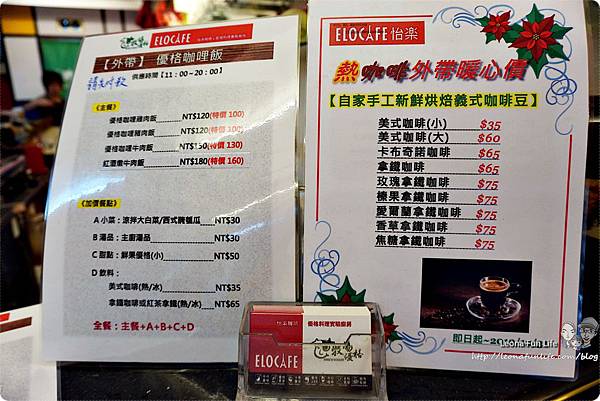 ELOCAFE
【外帶】 優格咖哩飯
供應時間【11:00~20:00】
《主餐》
優格咖哩雞肉飯 NT$120(特價 100)
優格咖哩豬肉飯 NT$120(特價 100)
優格咖哩牛肉飯 NT$150(特價 130)
紅酒燉牛肉飯 NT$180(特價 160)
《加價餐點》
A 小菜:涼拌大白菜/西式醃瓠瓜 NT$30
B 湯品:主廚湯品 NT$30
C 甜點:鮮果優格(小) NT$50
D 飲料:
美式咖啡(熱/冰) NT$35
拿鐵咖啡或紅茶拿鐵(熱/冰) NT$65
全餐:主餐+A+B+C+D
ELOCAFE怡樂
熱咖啡外帶暖心價
【自家手工新鮮烘焙義式咖啡豆】
美式咖啡(小) $35
美式咖啡(大) $60
卡布奇諾咖啡 $65
拿鐵咖啡 $65
玫瑰拿鐵咖啡 $75
榛果拿鐵咖啡 $75
愛爾蘭拿鐵咖啡 $75
香草拿鐵咖啡 $75
焦糖拿鐵咖啡 $75
即日起~20
優格料理實驗廚房
ELOCAFE
Leona Fun Life
http://leonafunlife.com/blog